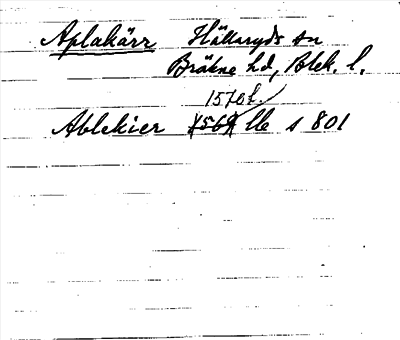 Aplakärr Hällaryds sn
Bräkne hd, Blek. l.
1570 f.
Ablekier 1569 lle s 801